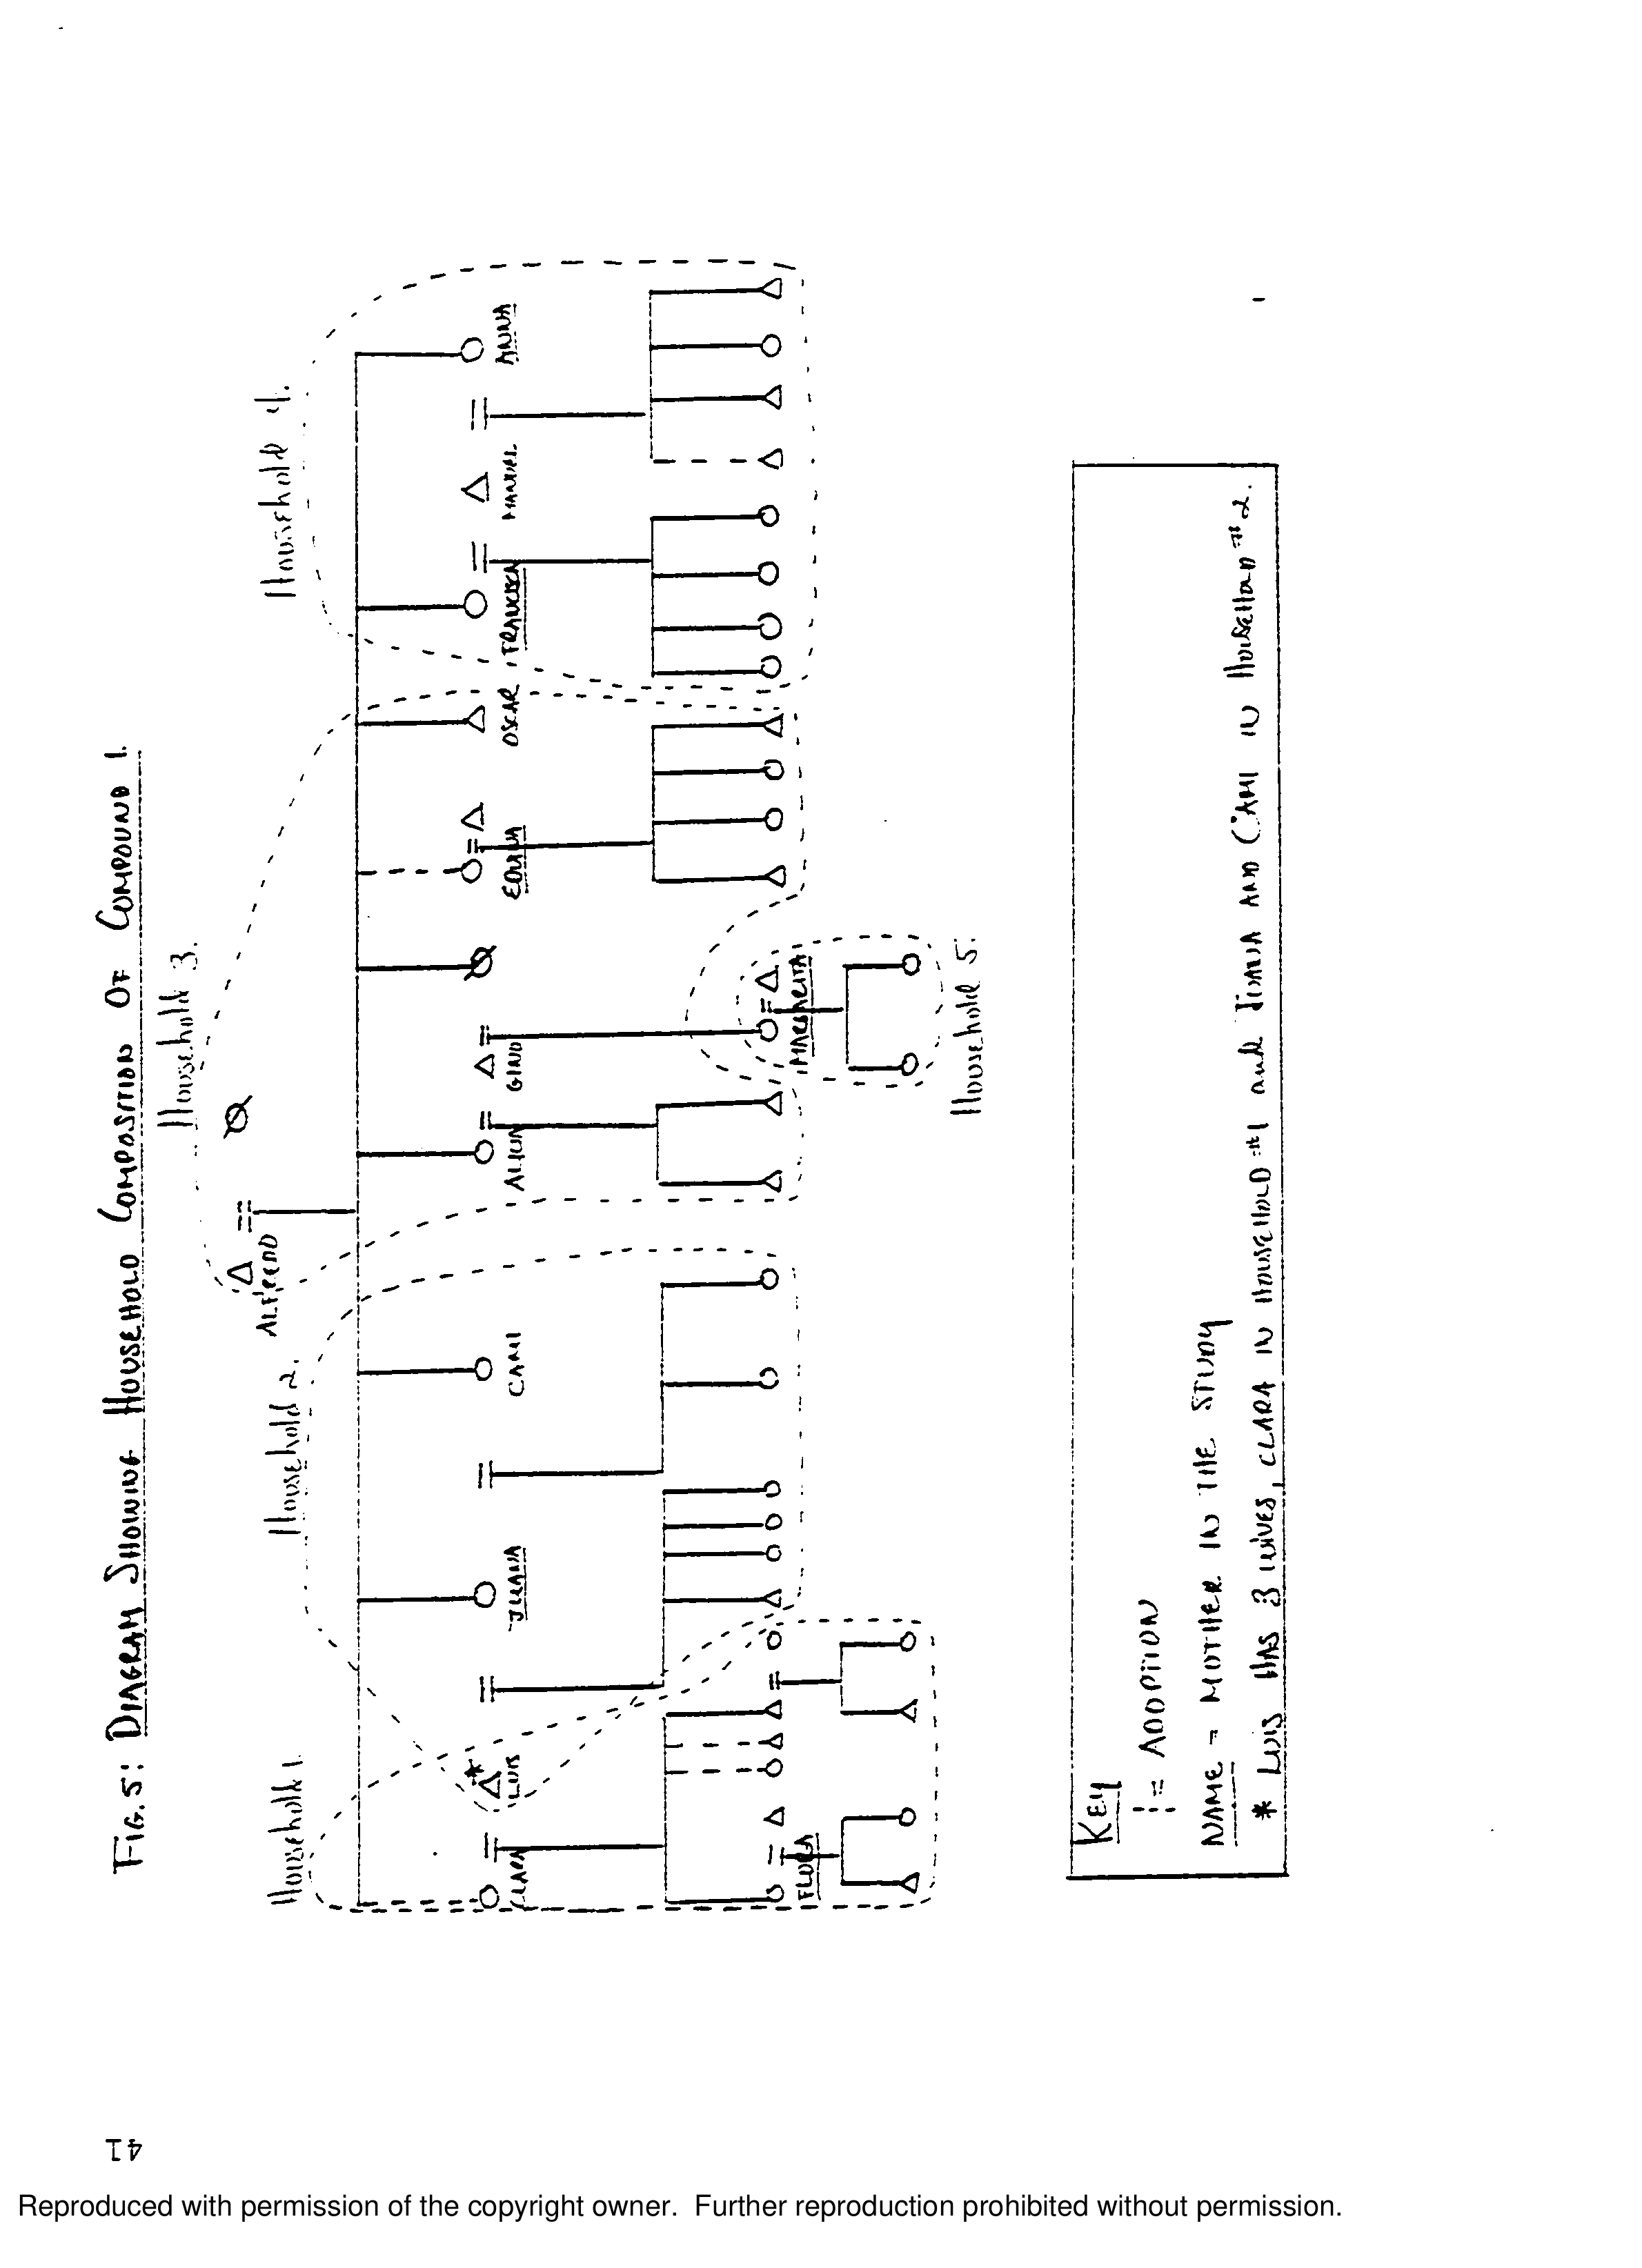 FIG. 5: DIAGRAM SHOWING HOUSEHOLD COMPOSITION OF COMPOUND 1.
Household 3.
Household 1.
Household 2.
Household 4.
ALFREDO
CLARA
*
LUIS
JUANA
CAMI
GINO
OSCAR
MANUEL
ANNA
FLORA
MARGARITA
Household 5.
KEY
¦ = ADOPTION
NAME = MOTHER IN THE STUDY
* LUIS HAS 3 WIVES, CLARA IN HOUSEHOLD #1 and JUANA AND CAMI IN HOUSEHOLD #2.
41
Reproduced with permission of the copyright owner. Further reproduction prohibited without permission.